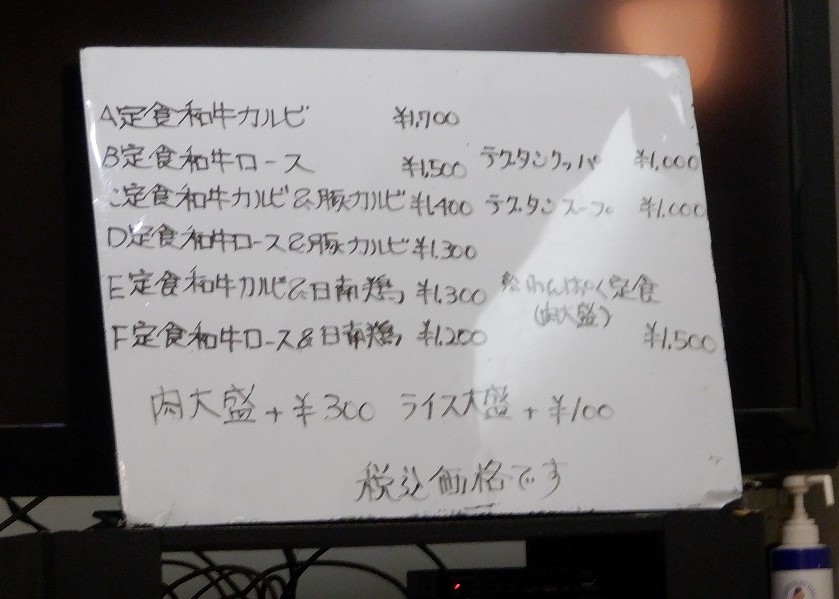 A定食和牛カルビ ¥1,700
B定食和牛ロース ¥1,500 テグタンクッパ ¥1,000
C定食和牛カルビ&豚カルビ ¥1,400 テグタンスープ ¥1,000
D定食和牛ロース&豚カルビ ¥1,300
E定食和牛カルビ&日南鶏 ¥1,300 わんぱく定食
(肉大盛)
F定食和牛ロース&日南鶏 ¥1,200 ¥1,500
肉大盛+¥300 ライス大盛+¥100
税込価格です